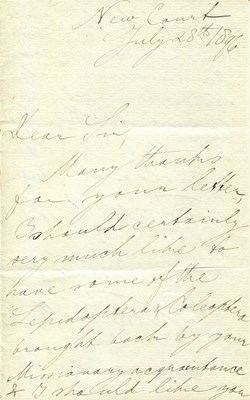 New Court
July 28th 1896.
Dear Sir,
Many thanks
for your letter,
I should certainly
very much like to
have some of the
Lepidoptera & Coleoptera
brought back by your
Missionary acquaintance
& I should like you